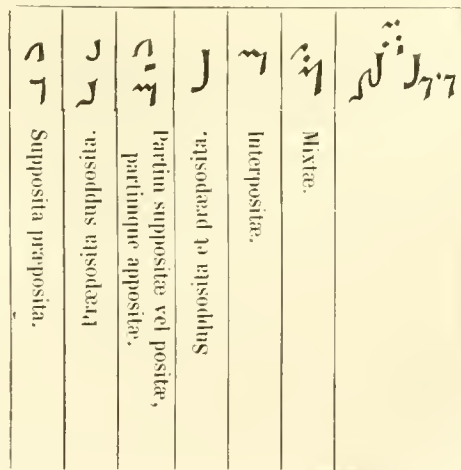 Supposita præposita.
Præposita supposita.
Partim suppositæ vel positæ,
partimque appositæ.
Supposita et præposita.
Interpositæ.
Mixtæ.